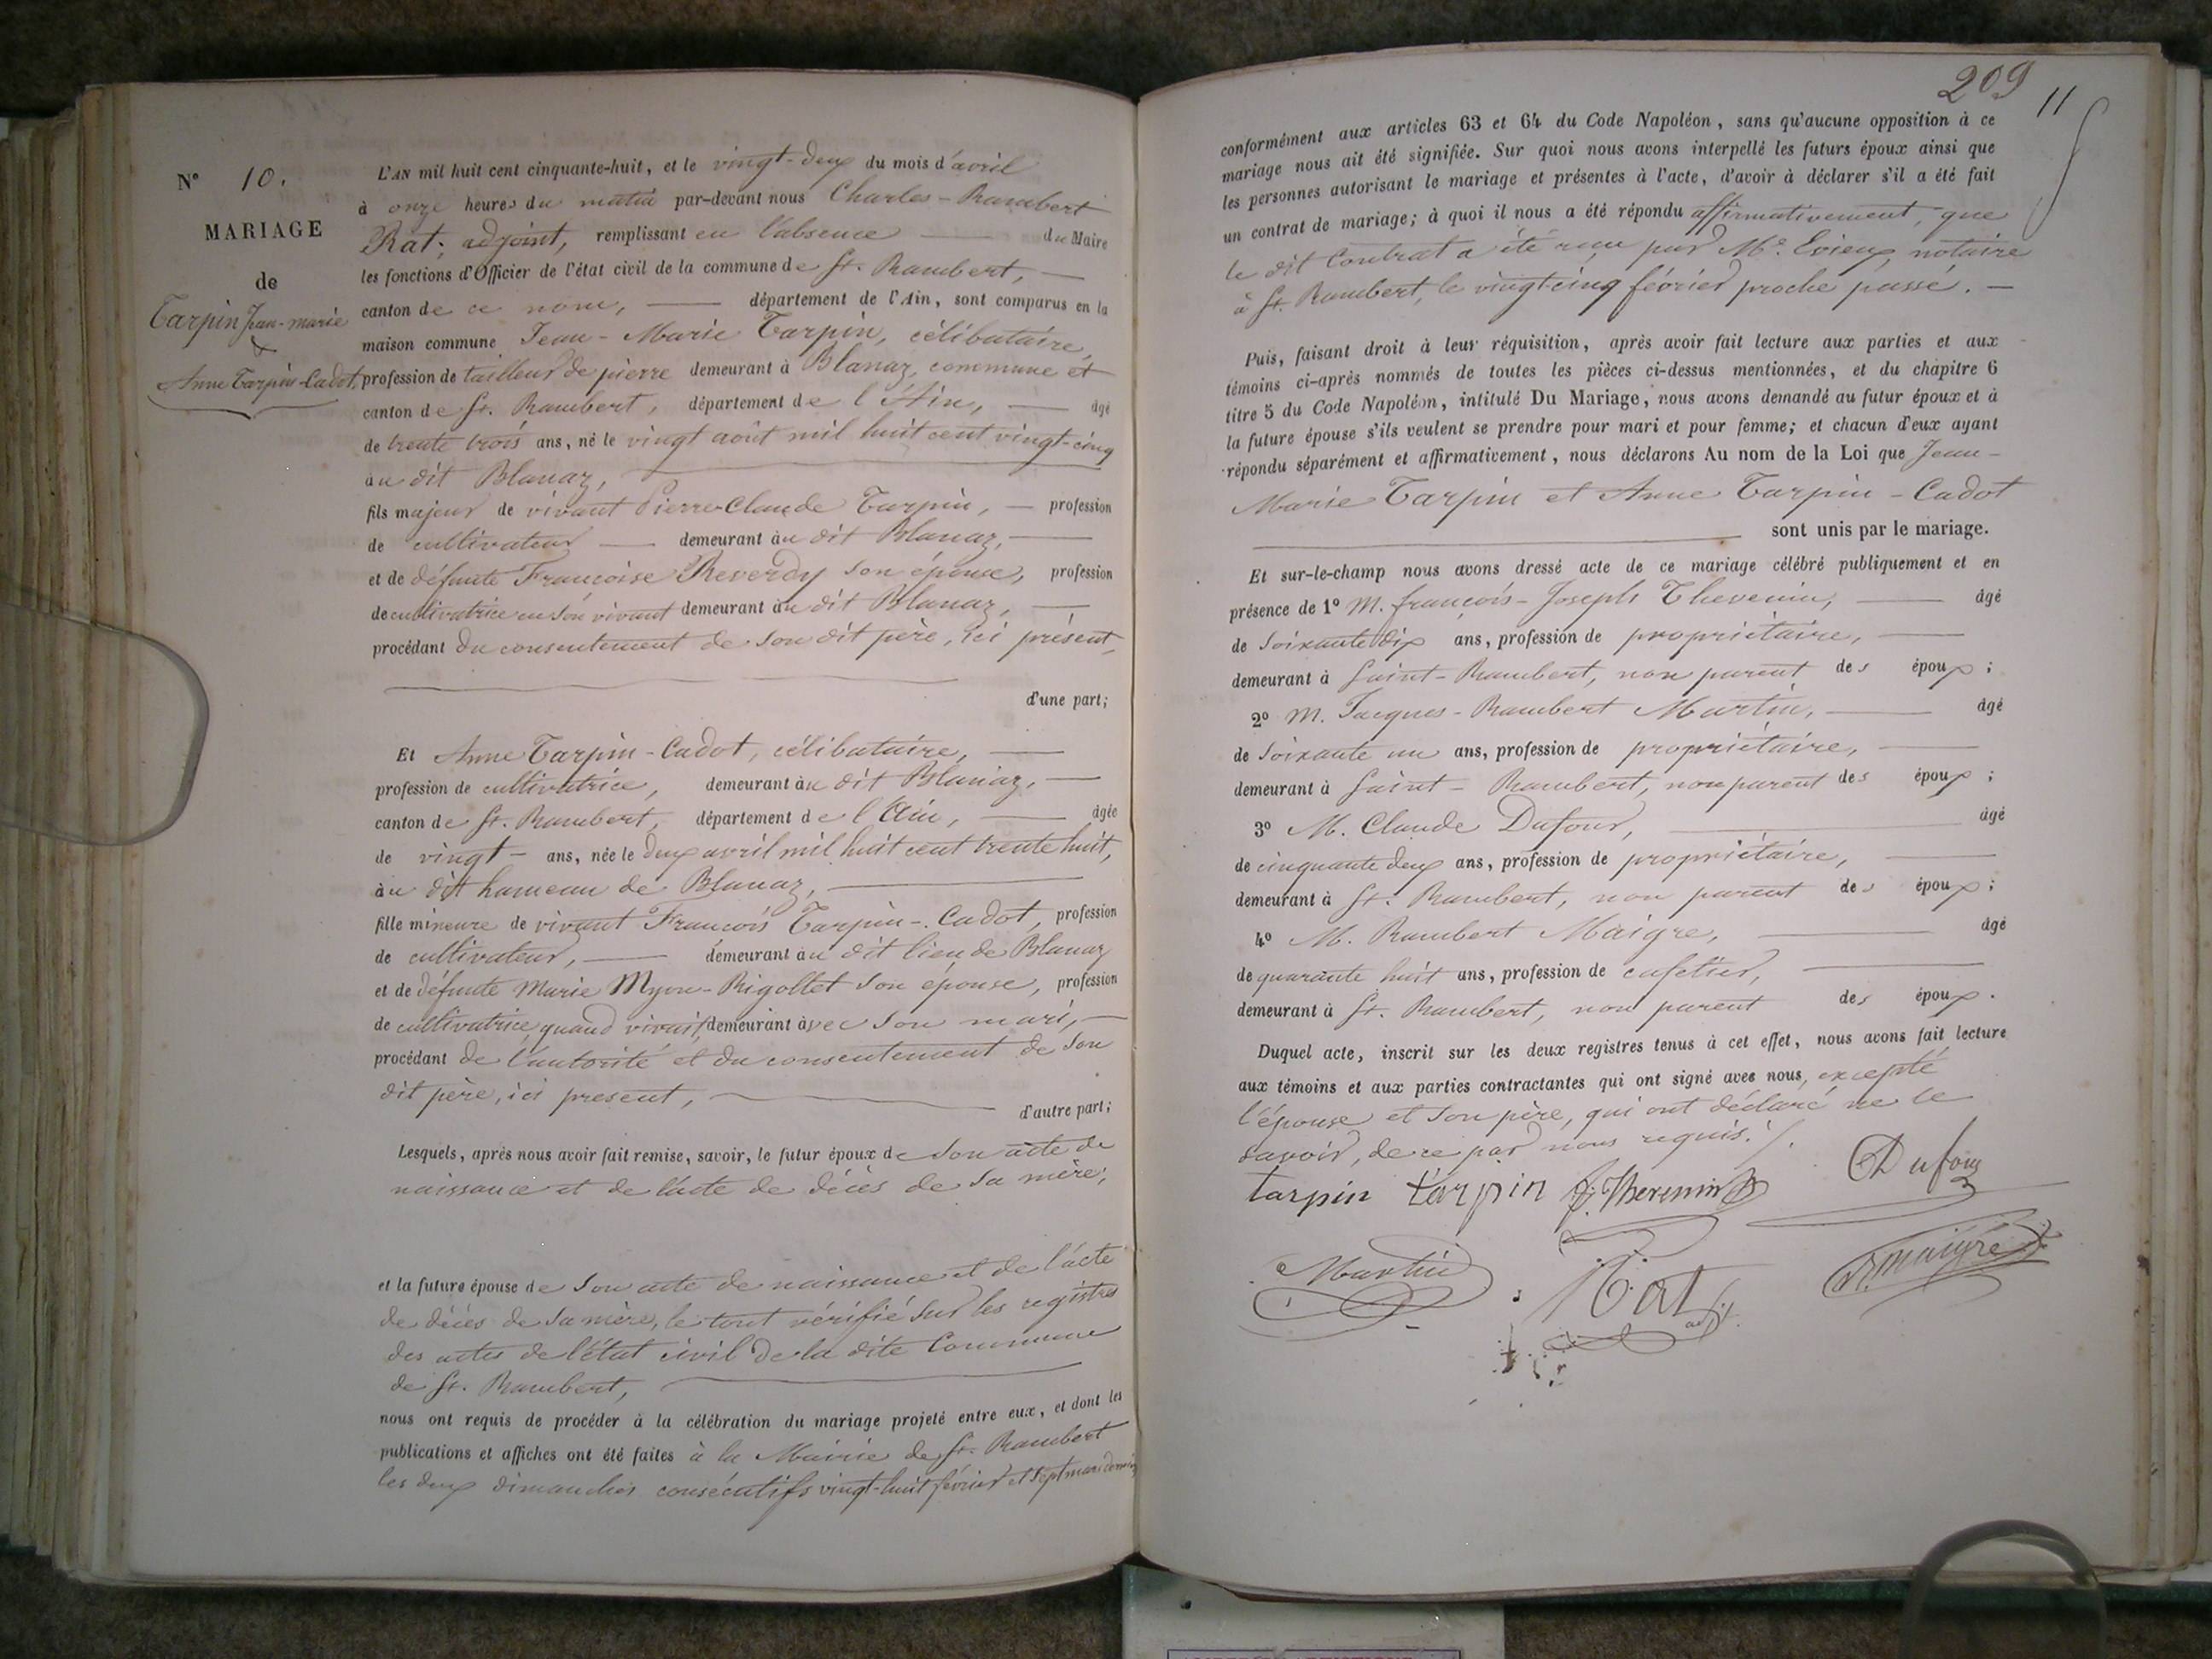 N° 10.
MARIAGE
de
Tarpin Jean-marie
&
Anne Tarpin-Cadot
L'AN mil huit cent cinquante-huit, et le vingt-deux du mois d'avril
à onze heures du matin par-devant nous Charles-Rambert
Rat, adjoint, remplissant en l'absence du Maire
les fonctions d'Officier de l'état civil de la commune de St. Rambert,
canton de ce nom, département de l'Ain, sont comparus en la
maison commune Jean-Marie Tarpin, célibataire,
profession de tailleur de pierre demeurant à Blanaz, commune et
canton de St. Rambert, département de l'Ain, âgé
de trente trois ans, né le vingt août mil huit cent vingt-cinq
au dit Blanaz,
fils majeur de vivant Pierre-Claude Tarpin, profession
de cultivateur demeurant au dit Blanaz,
et de défunte Françoise Reverdy son épouse, profession
de cultivatrice en son vivant demeurant au dit Blanaz,
procédant du consentement de son dit père, ici présent,
d'une part;
Et Anne Tarpin-Cadot, célibataire,
profession de cultivatrice, demeurant au dit Blanaz,
canton de St. Rambert, département de l'Ain, âgée
de vingt ans, née le deux avril mil huit cent trente huit,
au dit hameau de Blanaz,
fille mineure de vivant François Tarpin-Cadot, profession
de cultivateur, demeurant au dit lieu de Blanaz
et de défunte Marie Myon-Rigollet son épouse, profession
de cultivatrice quand vivait, demeurant avec son mari,
procédant de l'autorité et du consentement de son
dit père, ici present,
d'autre part;
Lesquels, après nous avoir fait remise, savoir, le futur époux de son acte de
naissance et de l'acte de décès de sa mère;
et la future épouse de son acte de naissance et de l'acte
de décès de sa mère, le tout vérifié sur les registres
des actes de l'état civil de la dite Commune
de St. Rambert,
nous ont requis de procéder à la célébration du mariage projeté entre eux, et dont les
publications et affiches ont été faites à la Mairie de St. Rambert
les deux dimanches consécutifs vingt-huit février et sept mars dernier
209
11
conformément aux articles 63 et 64 du Code Napoléon, sans qu'aucune opposition à ce
mariage nous ait été signifiée. Sur quoi nous avons interpellé les futurs époux ainsi que
les personnes autorisant le mariage et présentes à l'acte, d'avoir à déclarer s'il a été fait
un contrat de mariage; à quoi il nous a été répondu affirmativement, que
le dit Contrat a été reçu par Me. Evieux, notaire
à St. Rambert, le vingt-cinq février proche passé.
Puis, faisant droit à leur réquisition, après avoir fait lecture aux parties et aux
témoins ci-après nommés de toutes les pièces ci-dessus mentionnées, et du chapitre 6
titre 5 du Code Napoléon, intitulé Du Mariage, nous avons demandé au futur époux et à
la future épouse s'ils veulent se prendre pour mari et pour femme; et chacun d'eux ayant
répondu séparément et affirmativement, nous déclarons Au nom de la Loi que Jean-
Marie Tarpin et Anne Tarpin-Cadot
sont unis par le mariage.
Et sur-le-champ nous avons dressé acte de ce mariage célébré publiquement et en
présence de 1° M. françois-Joseph Thevenin, âgé
de soixante dix ans, profession de propriétaire,
demeurant à Saint-Rambert, non parent des époux;
2° M. Jacques-Rambert Martin, âgé
de soixante un ans, profession de propriétaire,
demeurant à Saint-Rambert, non parent des époux;
3° M. Claude Dufour, âgé
de cinquante deux ans, profession de propriétaire,
demeurant à St. Rambert, non parent des époux;
4° M. Rambert Maigre, âgé
de quarante huit ans, profession de cafetier,
demeurant à St. Rambert, non parent des époux.
Duquel acte, inscrit sur les deux registres tenus à cet effet, nous avons fait lecture
aux témoins et aux parties contractantes qui ont signé avec nous, excepté
l'épouse et son père, qui ont déclaré ne le
savoir, de ce par nous requis.
tarpin tarpin J. Thevenin Dufour
Martin Rat adj. R. maigre